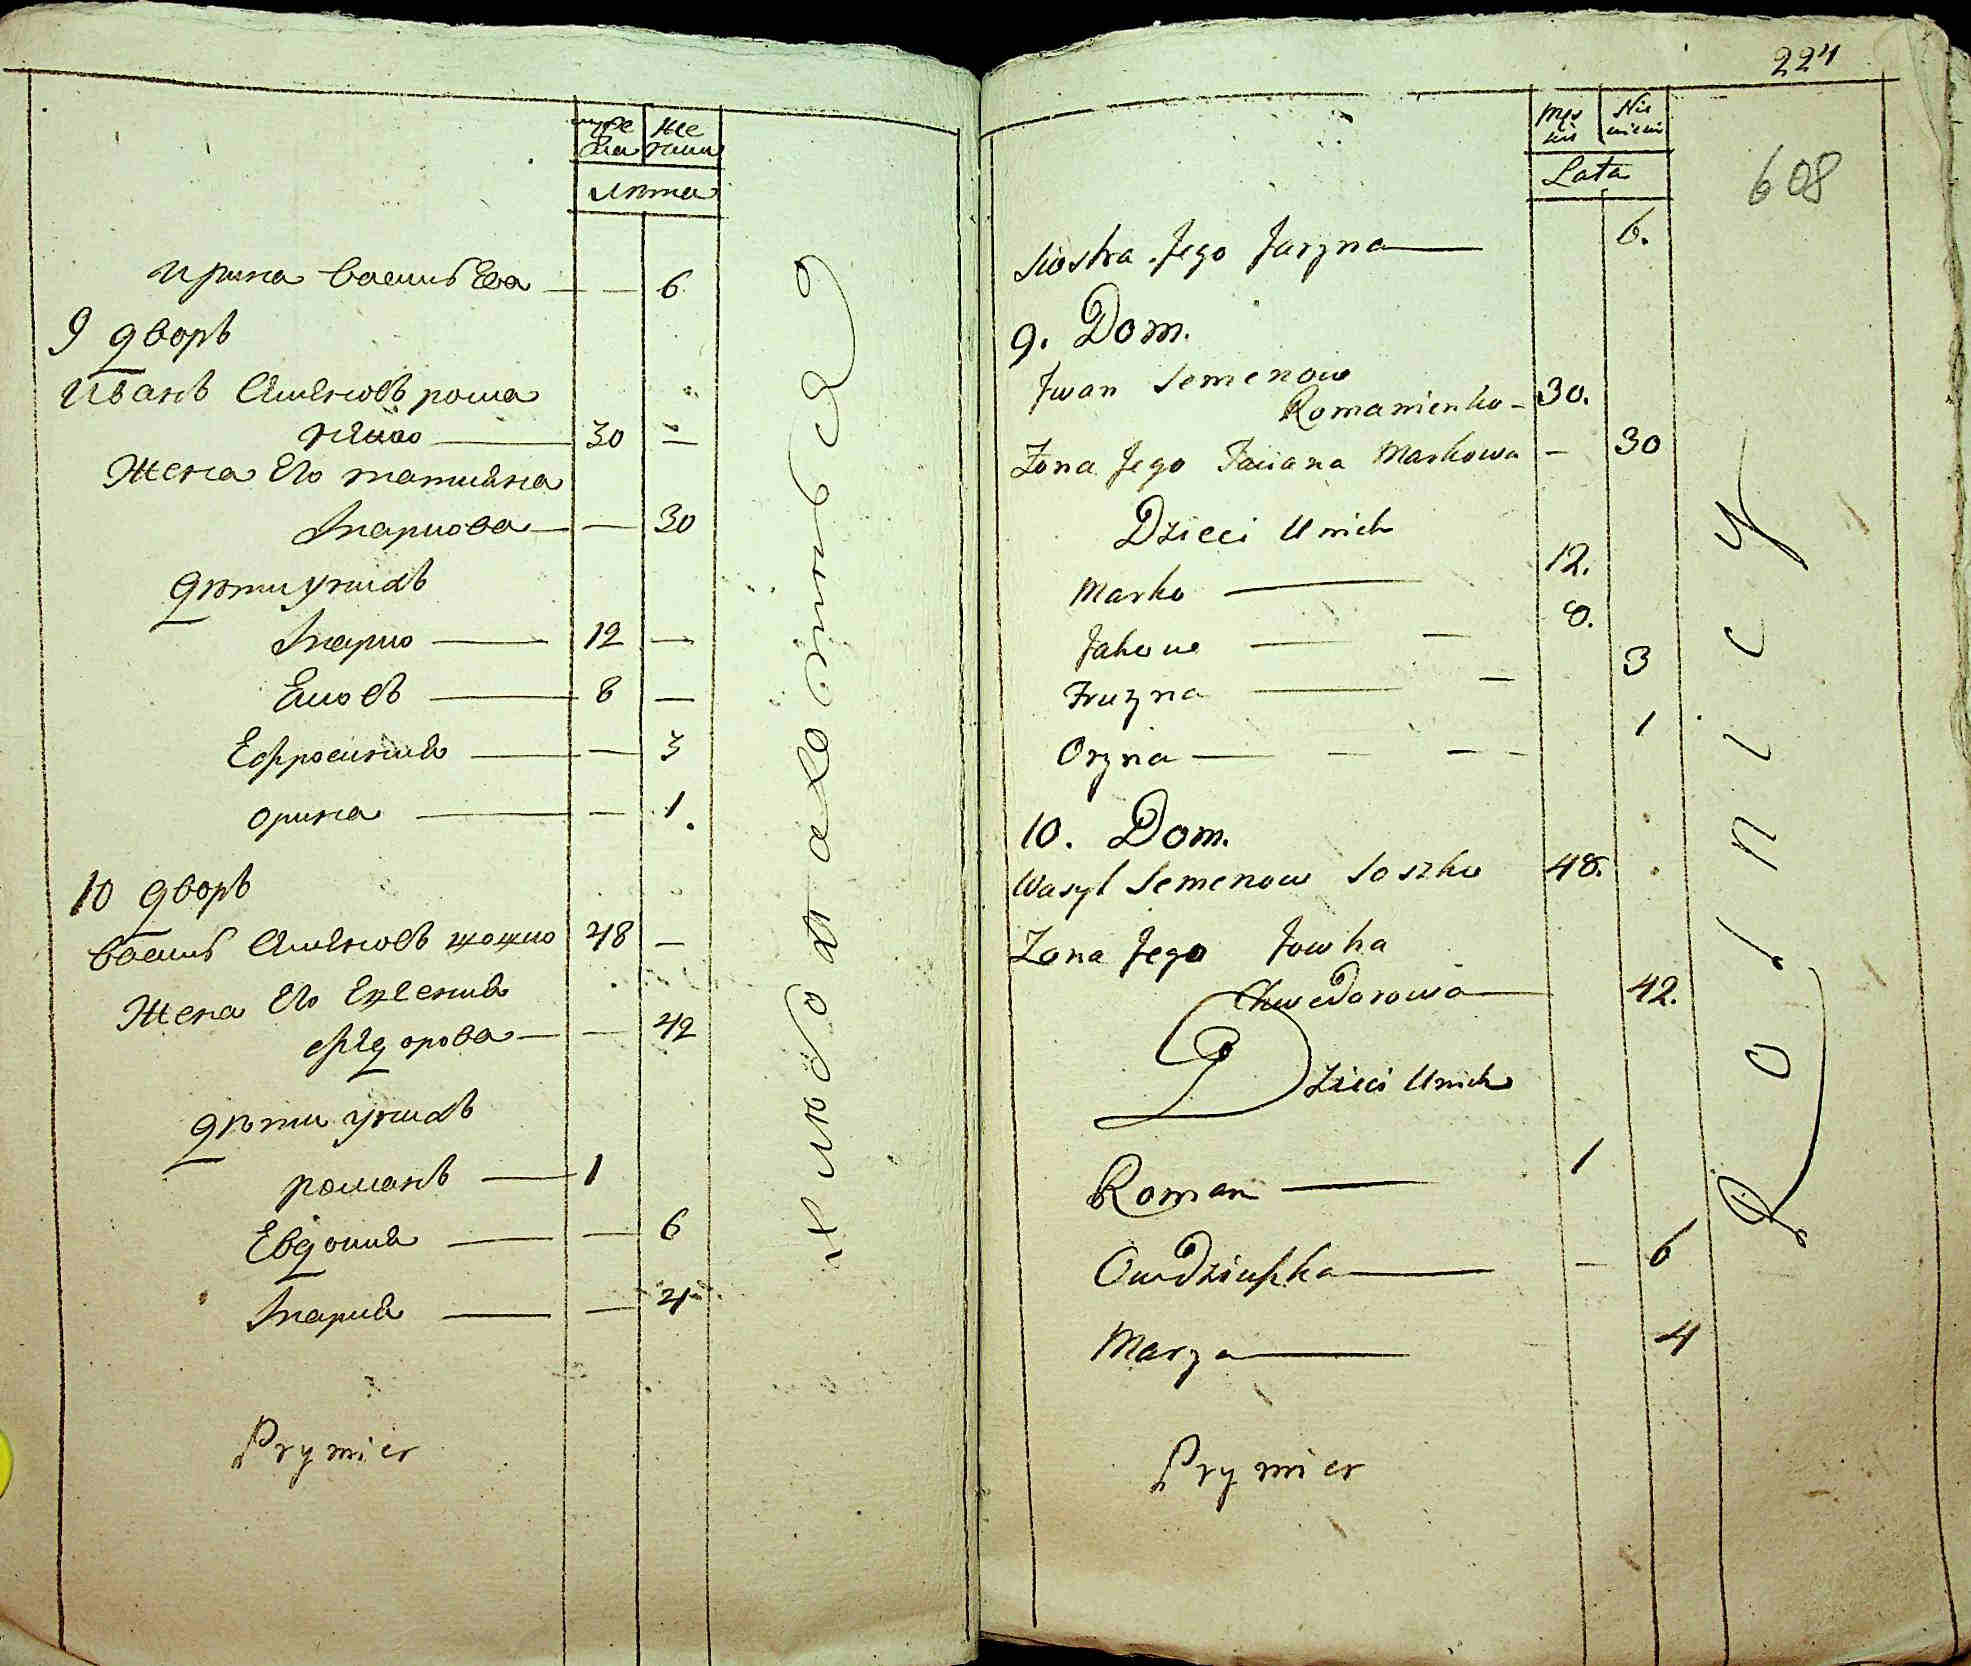 муже
ска
же
нска
лѣта
Ирина васильева — — 6
9 дворъ
Иванъ Семеновъ рома
ненко — 30 —
Жена Его татияна
Маркова — — 30
дѣти унихъ
Марко — 12 —
Яковъ — 8 —
Ефросиния — — 3
орина — — 1.
10 дворъ
василь Семеновъ 48 —
Жена Его Евгения
федорова — — 42
дѣти унихъ
романъ — 1
Евдокия — — 6
Мария — — 4
Prymier
224
608
Męs
kie
Lata
Siostra Jego Jaryna — 6.
9. Dom.
Jwan Semenow
Romanienko — 30.
Żona Jego Taciana Markowa — 30
Dzieci Unich
Marko — 12.
Jakow — — 8.
Fruzyna — — 3
Oryna — — — — 1
10. Dom.
Wasyl Semenow Soszko 48.
Żona Jego Jowha
Chwedorowa — 42.
Dzieci Unich
Roman — 1
Owdziuszka — — 6
Marya — 4
Prymier
Rolnicy